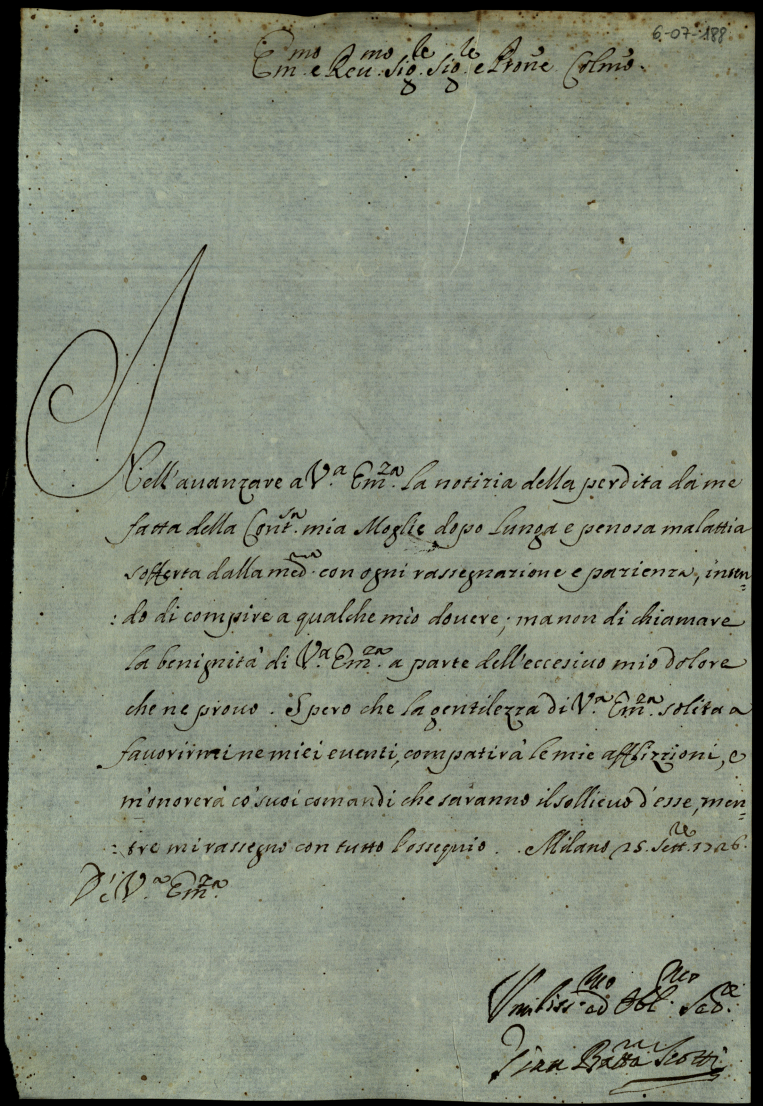 6-07-188
Em.mo e Rev.mo Sig.le Sig.le e Prone Colmo.
Nell'auanzare a V.a Em.za la notizia della perdita da me
fatta della Cont.sa mia Moglie dopo lunga e penosa malattia
sofferta dalla med.ma con ogni rassegnazione e pazienza, inten=
:do di compire a qualche mio douere; ma non di chiamare
la benignità di V.a Em.za a parte dell'eccesiuo mio dolore
che ne prouo. Spero che la gentilezza di V.a Em.za solita a
fauorirmi ne miei euenti, compatirà le mie afflizzioni, e
m'onorerà co' suoi comandi che saranno il sollieuo d'esse, men=
:tre mi rassegno con tutto l'ossequio. Milano 25. Sett.re 1726.
Di V.a Em.za
Vmiliss.mo ed Obl.mo Ser.re
Gian Batta Scotti